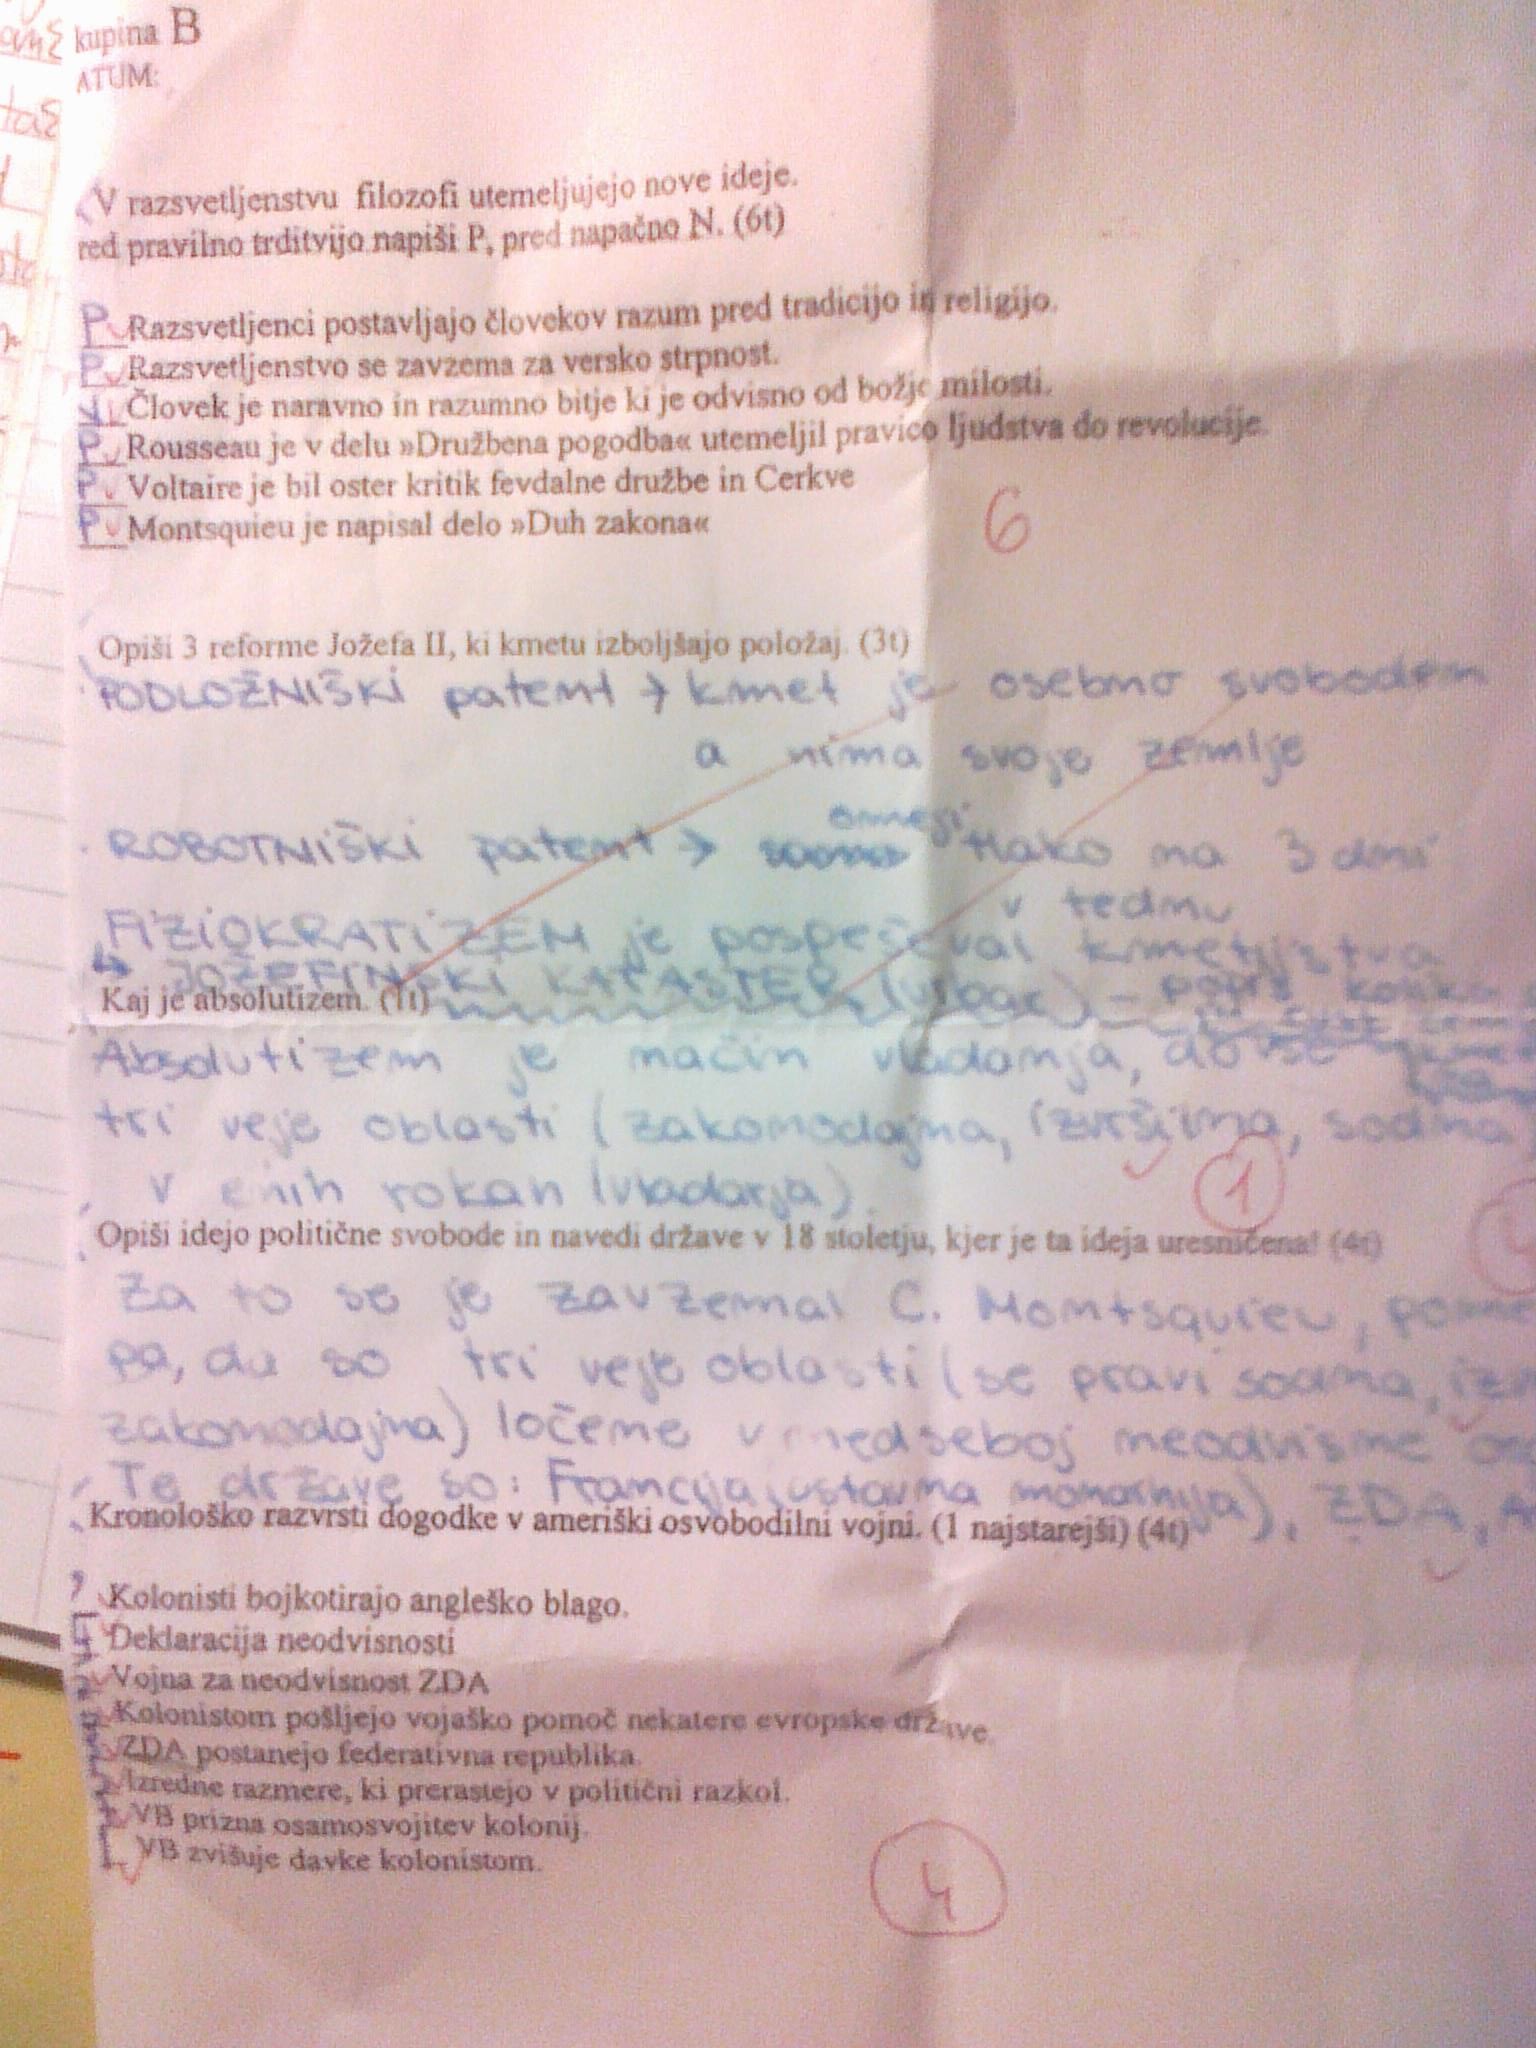 kupina B
ATUM:
V razsvetljenstvu filozofi utemeljujejo nove ideje.
red pravilno trditvijo napiši P, pred napačno N. (6t)
P Razsvetljenci postavljajo človekov razum pred tradicijo in religijo.
P Razsvetljenstvo se zavzema za versko strpnost.
N Človek je naravno in razumno bitje ki je odvisno od božje milosti.
P Rousseau je v delu »Družbena pogodba« utemeljil pravico ljudstva do revolucije.
P Voltaire je bil oster kritik fevdalne družbe in Cerkve
P Montsquieu je napisal delo »Duh zakona«
6
Opiši 3 reforme Jožefa II, ki kmetu izboljšajo položaj. (3t)
PODLOŽNIŠKI patent → kmet je osebno svoboden
a nima svoje zemlje
ROBOTNIŠKI patent → omeji tlako na 3 dni
v tednu
FIZIOKRATIZEM je pospeševal kmetijstva
↳ JOŽEFINSKI KATASTER popis koliko
Kaj je absolutizem. (1t)
Absolutizem je način vladanja, da so
tri veje oblasti (zakonodajna, izvršilna, sodna)
v enih rokah (vladarja).
1
Opiši idejo politične svobode in navedi države v 18 stoletju, kjer je ta ideja uresničena! (4t)
Za to se je zavzemal C. Montsquieu,
pa, da so tri veje oblasti (se pravi sodna,
zakonodajna) ločene v medseboj neodvisne
Te države so: Francija (ustavna monarhija), ZDA,
Kronološko razvrsti dogodke v ameriški osvobodilni vojni. (1 najstarejši) (4t)
Kolonisti bojkotirajo angleško blago.
Deklaracija neodvisnosti
Vojna za neodvisnost ZDA
Kolonistom pošljejo vojaško pomoč nekatere evropske države.
ZDA postanejo federativna republika.
Izredne razmere, ki prerastejo v politični razkol.
VB prizna osamosvojitev kolonij.
1 VB zvišuje davke kolonistom.
4